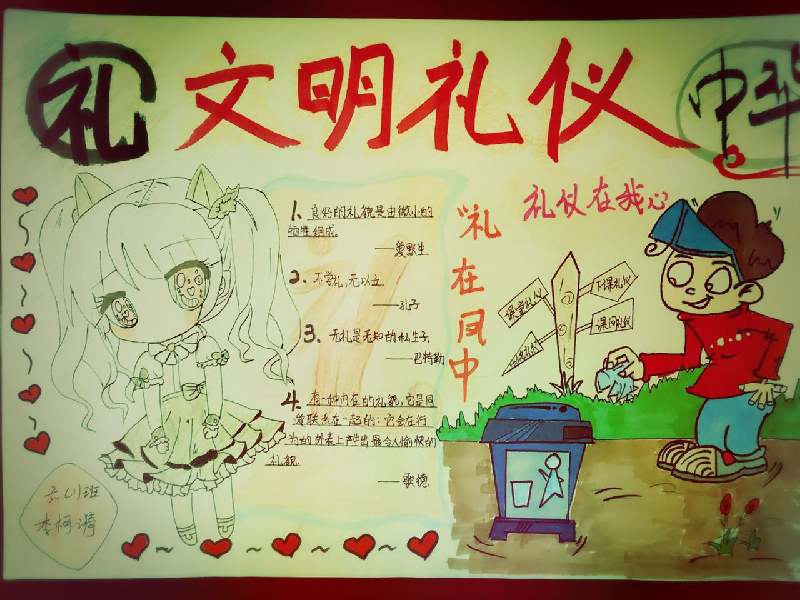 礼
文明礼仪
中华
礼仪在我心
1、良好的礼貌是由微小的
牺牲组成。
——爱默生
2、不学礼,无以立。
——孔子
3、无礼是无知的私生子。
——巴特勒
4、有一种内在的礼貌,它是同
爱联系在一起的:它会在行
为的外表上产生出最令人愉快的
礼貌
——歌德
"礼在风中
课堂礼仪
下课礼仪
课间礼仪
李柯漪